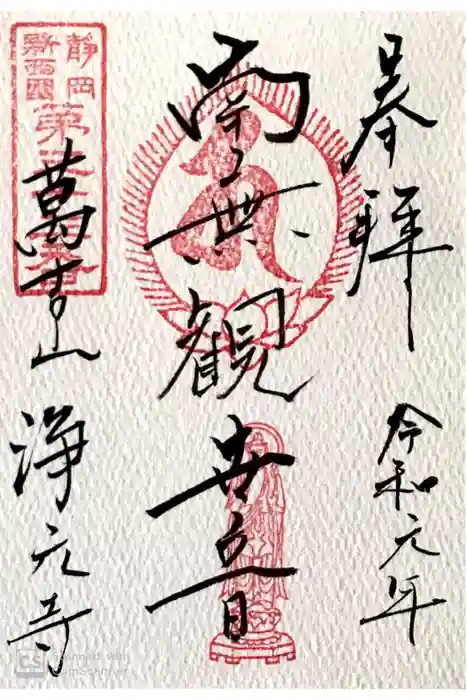 奉拝
令和元年
南無観世音
静岡
新西国
第
萬吉山
浄元寺
CS Scanned with
CamScanner